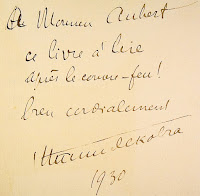 A Monsieur Aubert
ce livre à lire
après le couvre-feu !
bien cordialement
1930